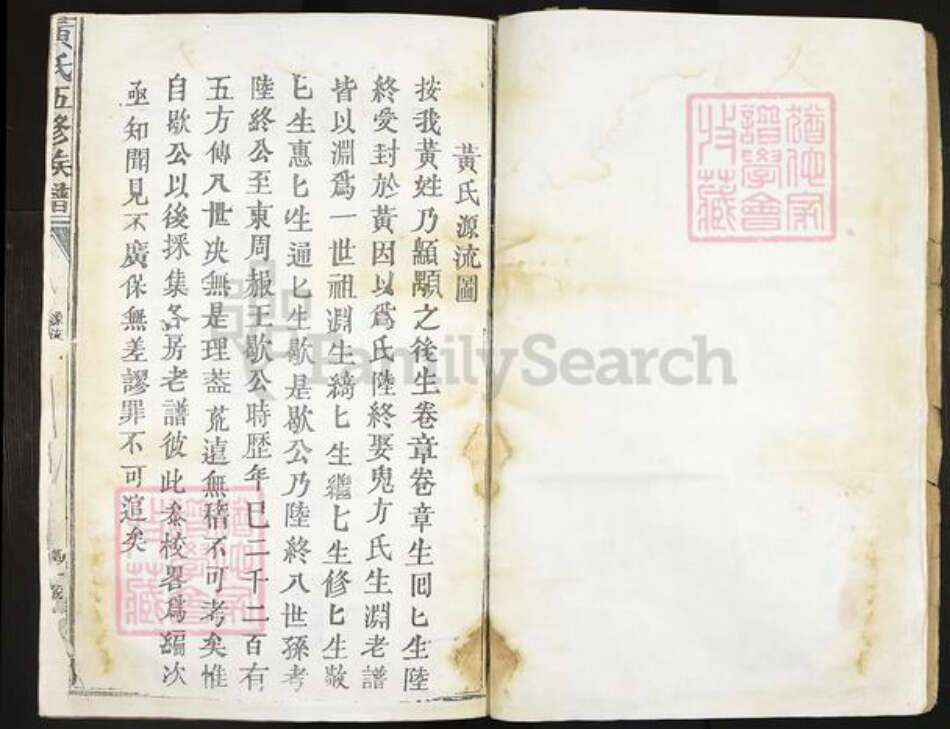 黃氏源流圖
按我黃姓乃顓頊之後生卷章卷章生囘匕生陸
終受封於黃因以爲氏陸終娶鬼方氏生淵老譜
皆以淵爲一世祖淵生縞匕生繼匕生修匕生敬
匕生惠匕生通匕生歇是歇公乃陸終八世孫考
陸終公至東周赧王歇公時歷年已二千二百有
五方傳八世决無是理葢荒遠無稽不可考矣惟
自歇公以後採集各房老譜彼此叅校畧爲編次
亟知聞見不廣保無差謬罪不可逭矣
黃氏五修族譜
源流
FamilySearch